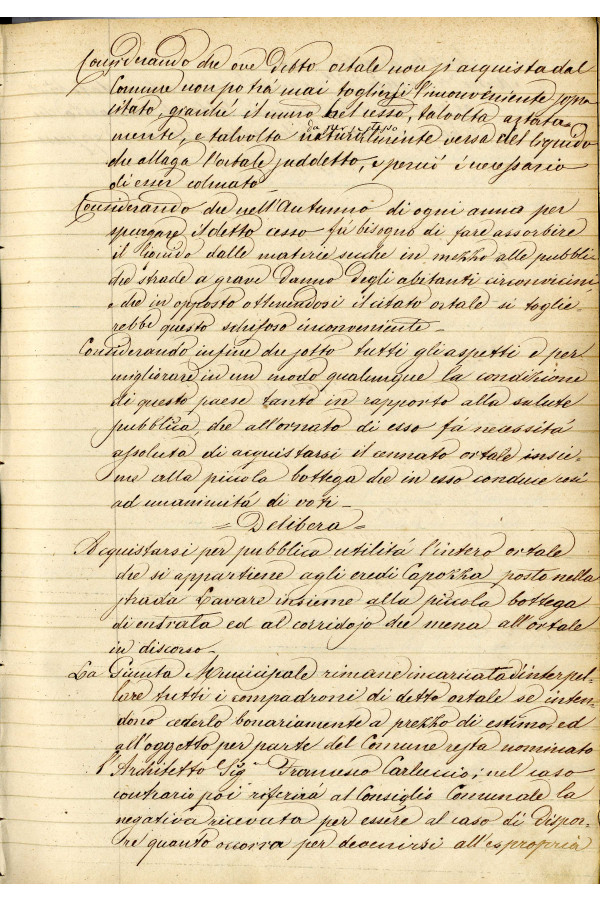 Considerando che ove detto ortale non si acquista dal
Comune non potrà mai togliersi l'inconveniente sopra
citato, perché il muro del cesso, talvolta
mente, e talvolta da se stesso naturalmente versa del liquido
che allaga l'ortale suddetto, e perciò è necessario
di esser colmato
Considerando che nell'Autunno di ogni anno per
spurgare il detto cesso fà bisogno di fare assorbire
il liquido dalle materie secche in mezzo alle pubbli
che strade a grave danno degli abitanti circonvicini
e che in opposto ottenendosi il citato ortale si toglie-
rebbe questo schifoso inconveniente -
Considerando infine che sotto tutti gli aspetti e per
migliorare in un modo qualunque la condizione
di questo paese tanto in rapporto alla salute
pubblica, che all'ornato di esso fà necessità
assoluta di acquistarsi il cennato ortale insie-
me alla piccola bottega che in esso conduce così
ad unanimità di voti -
= Delibera =
Acquistarsi per pubblica utilità l'intero ortale
che si appartiene agli eredi Capozza posto nella
strada Lavare insieme alla piccola bottega
di entrata ed al corridojo che mena all'ortale
in discorso -
La Giunta Municipale rimane incaricata d'interpel-
lare tutti i compadroni di detto ortale se inten-
dono cederlo bonariamente a prezzo di estimo, ed
all'oggetto per parte del Comune resta nominato
l'Architetto Sigr Francesco Carluccio; nel caso
contrario poi riferirà al Consiglio Comunale la
negativa ricevuta per essere al caso di dispor-
re quanto occorra per devenirsi all'espropria